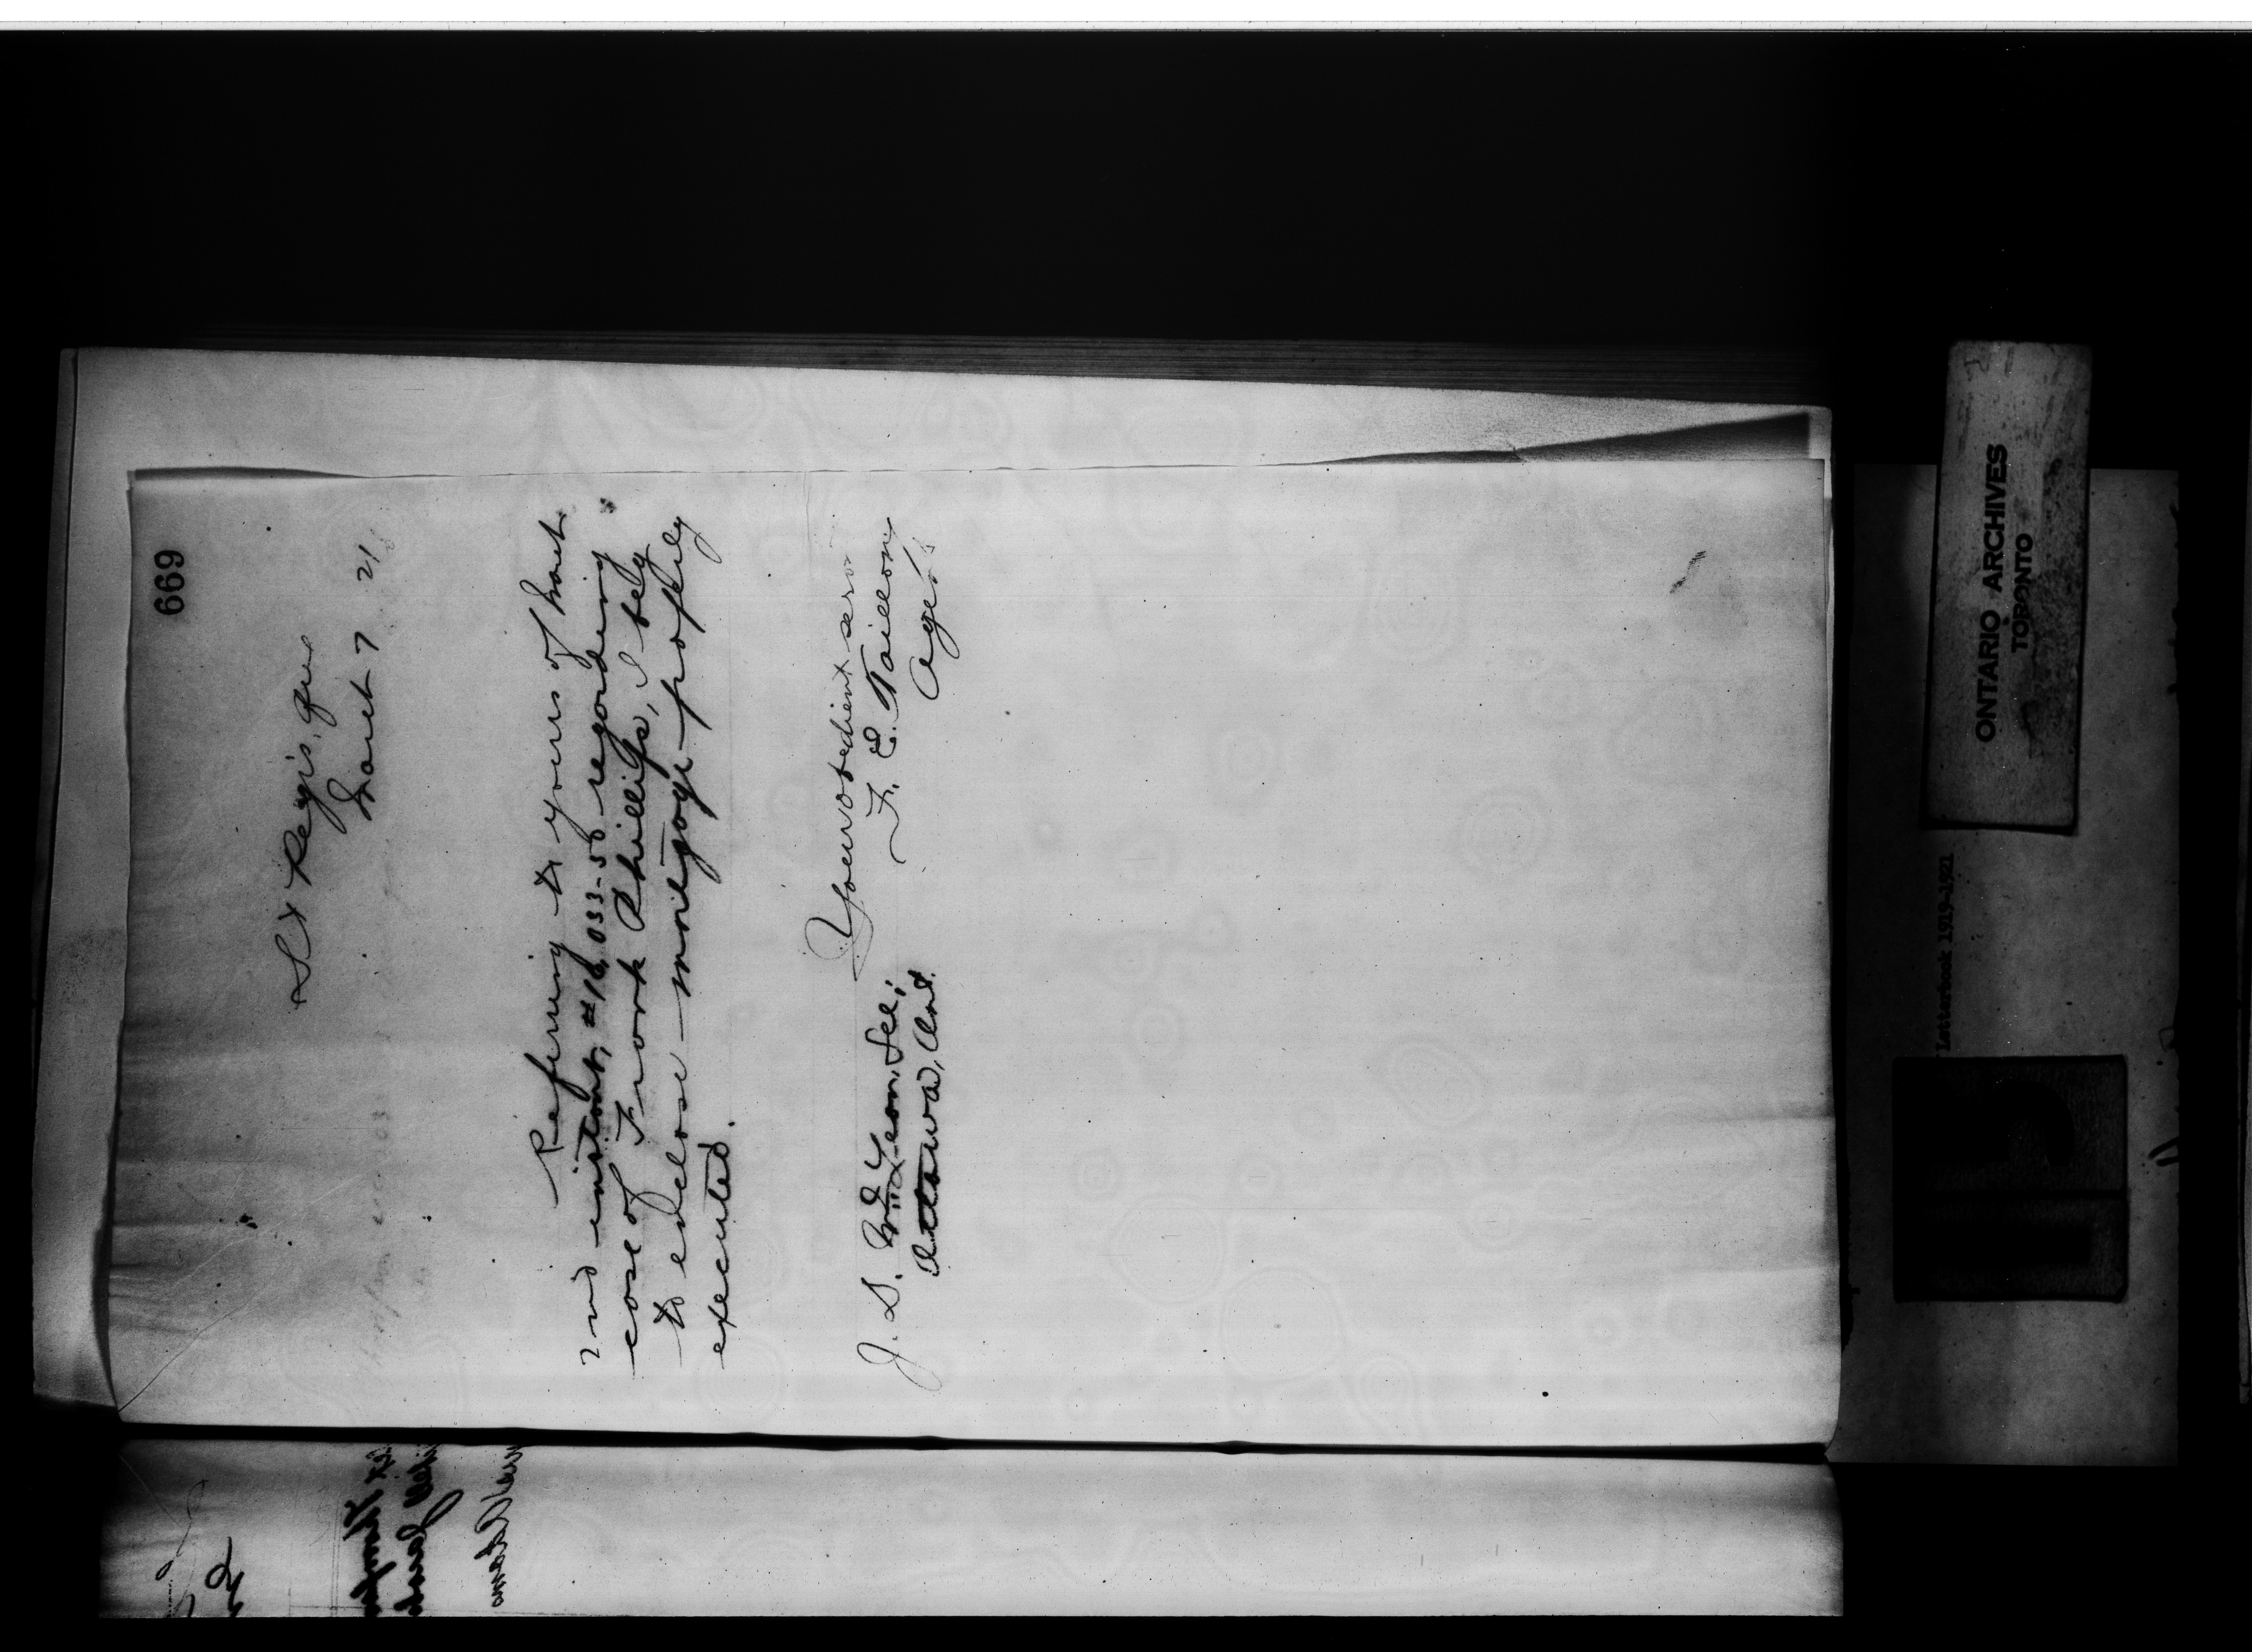 669
St Regis, Que
March 7 21
Refering to yours of March
2nd instant, #16,033-50 regarding
case of Frank Phillips, I beg
to enclose mortgage properly
executed.
Your obedient serv
F. E. Taillon
Agent
J. D. McLean, Sec;
Ottawa, Ont.
ONTARIO ARCHIVES
TORONTO
Letterbook 1919-1921